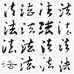 法 法 法 法
法 法 法 法
法 法 法 法
法 法 法 法